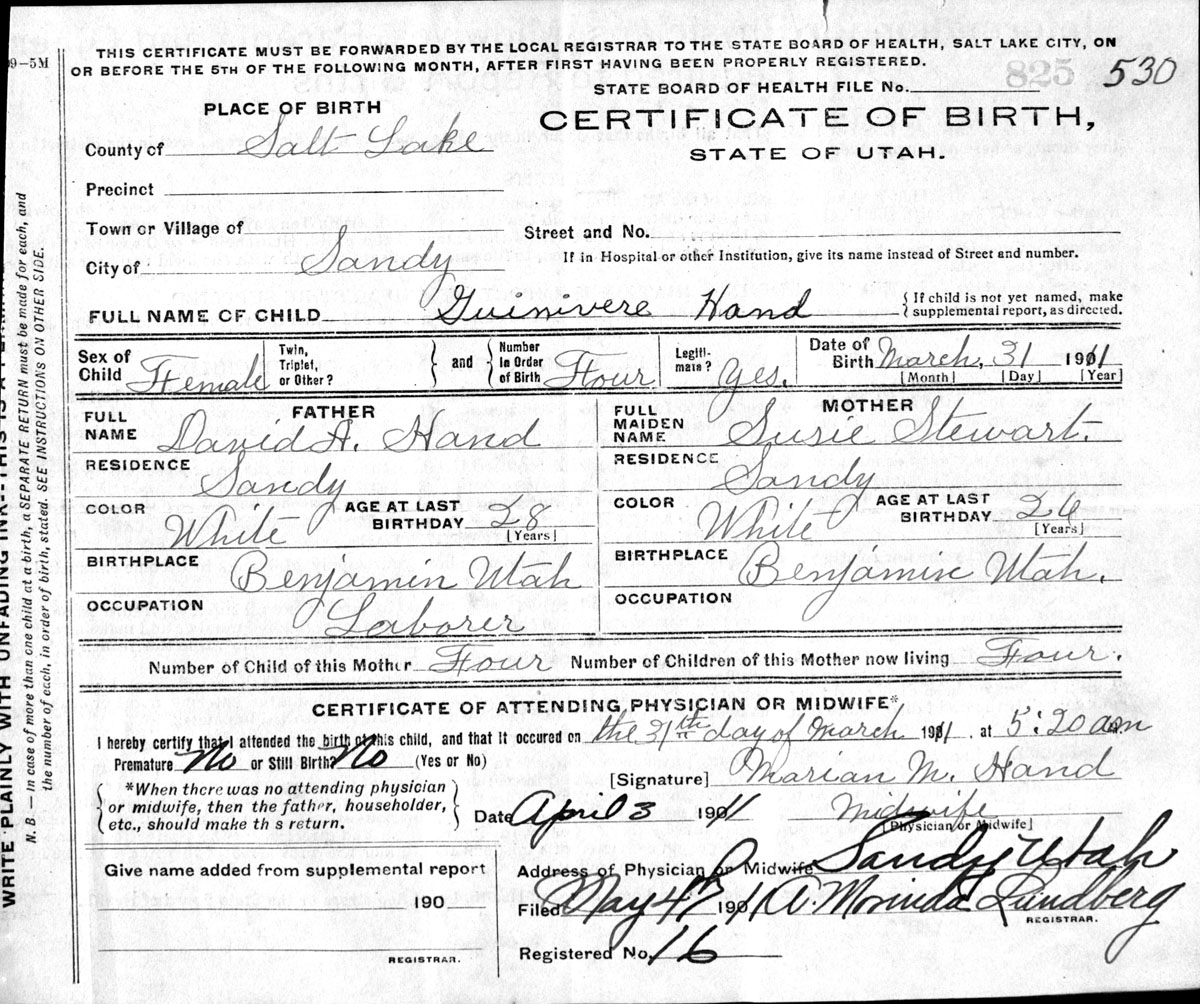 THIS CERTIFICATE MUST BE FORWARDED BY THE LOCAL REGISTRAR TO THE STATE BOARD OF HEALTH, SALT LAKE CITY, ON
OR BEFORE THE 5TH OF THE FOLLOWING MONTH, AFTER FIRST HAVING BEEN PROPERLY REGISTERED.
09-5M
825
STATE BOARD OF HEALTH FILE No. 530
PLACE OF BIRTH
CERTIFICATE OF BIRTH,
STATE OF UTAH.
County of Salt Lake
Precinct
Town or Village of
Street and No.
City of Sandy
If in Hospital or other Institution, give its name instead of Street and number.
FULL NAME OF CHILD Guinivere Hand
{ If child is not yet named, make
supplemental report, as directed.
Sex of Child Female
Twin, Triplet, or Other?
and
Number in Order of Birth Four
Legiti-mate? Yes.
Date of Birth March, 31 1911
[Month] [Day] [Year]
FATHER
FULL NAME David A. Hand
RESIDENCE Sandy
COLOR White
AGE AT LAST BIRTHDAY 28
[Years]
BIRTHPLACE Benjamin Utah
OCCUPATION Laborer
MOTHER
FULL MAIDEN NAME Susie Stewart.
RESIDENCE Sandy
COLOR White
AGE AT LAST BIRTHDAY
[Years]
BIRTHPLACE Benjamin Utah.
OCCUPATION
Number of Child of this Mother Four Number of Children of this Mother now living Four.
CERTIFICATE OF ATTENDING PHYSICIAN OR MIDWIFE*
I hereby certify that I attended the birth of this child, and that it occured on the 31th day of March 1911. at 5:20 am
Premature No or Still Birth? No (Yes or No)
[Signature] Marian M. Hand
*When there was no attending physician
or midwife, then the father, householder,
etc., should make th s return.
Date April 3 1911 Midwife
[Physician or Midwife]
Give name added from supplemental report
190
REGISTRAR.
Address of Physician or Midwife Sandy Utah
Filed May 4th 1911 A. Morinda Lundberg
REGISTRAR.
Registered No. 16
WRITE PLAINLY WITH UNFADING INK--THIS IS A
N. B.—In case of more than one child at a birth, a SEPARATE RETURN must be made for each, and
the number of each, in order of birth, stated. SEE INSTRUCTIONS ON OTHER SIDE.